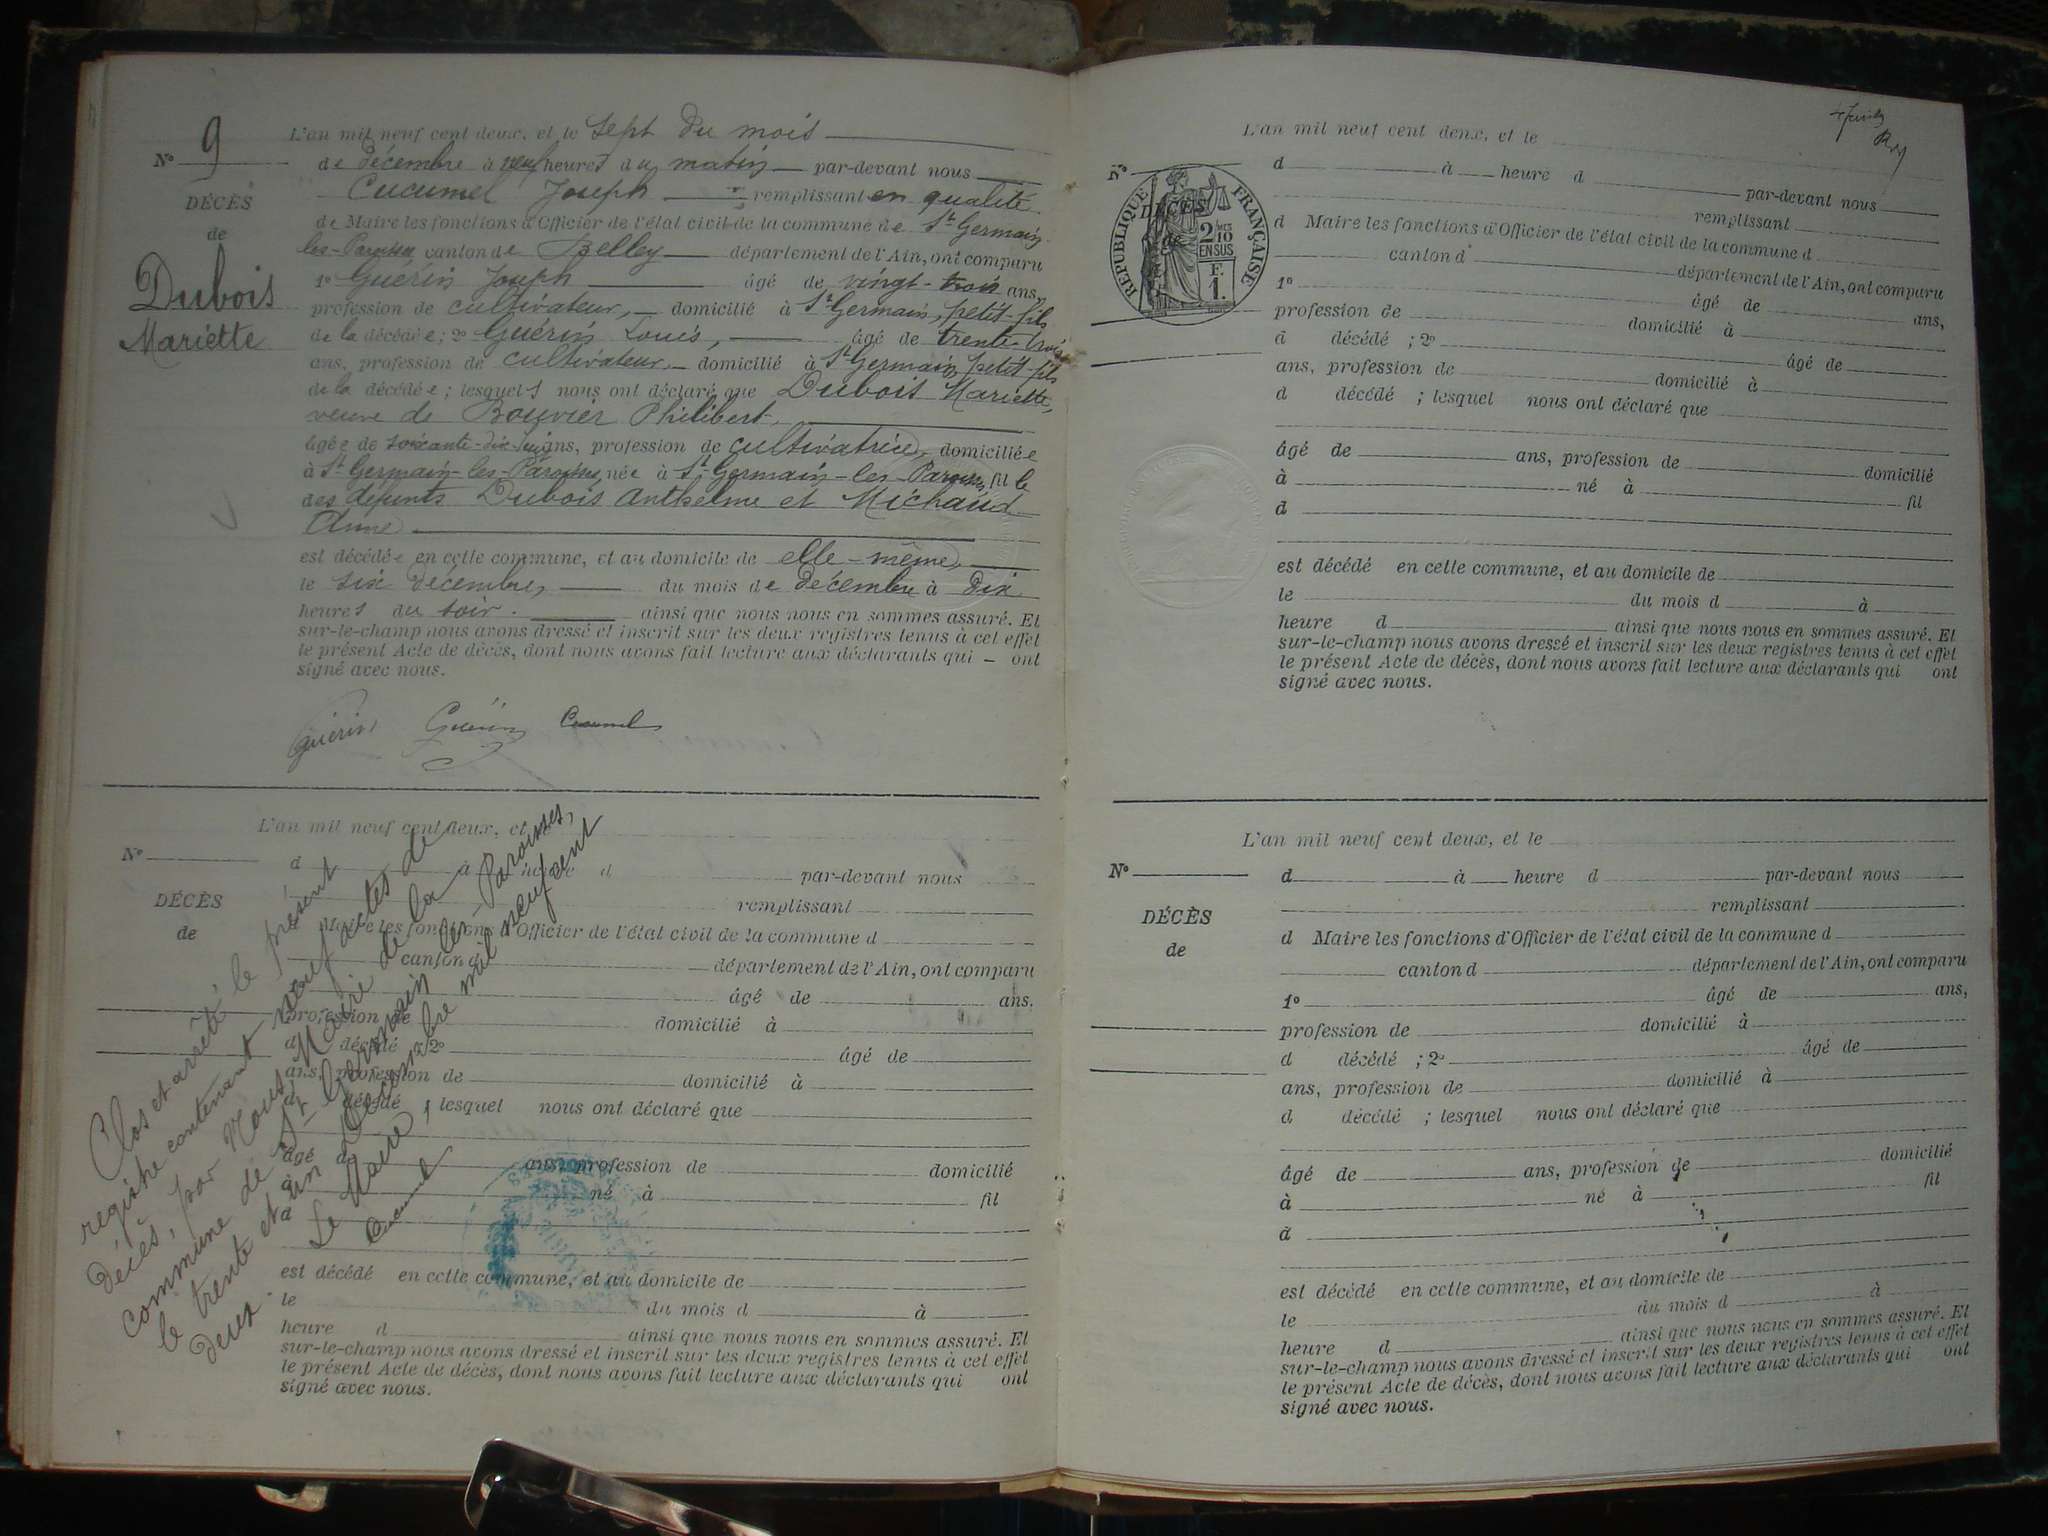 N° 9
DÉCÈS
de
Dubois
Mariette
L'an mil neuf cent deux, et le sept du mois
de décembre à neuf heures du matin par-devant nous
Cucumel Joseph remplissant en qualité
de Maire les fonctions d'Officier de l'état civil de la commune de St Germain
les-Paroisses canton de Belley département de l'Ain, ont comparu
1° Guérin Joseph âgé de vingt-trois ans,
profession de cultivateur, domicilié à St Germain, petit-fils
de la décédée ; 2° Guérin Louis, âgé de trente-trois
ans, profession de cultivateur, domicilié à St Germain, petit-fils
de la décédée ; lesquels nous ont déclaré que Dubois Mariette,
veuve de Bouvier Philibert,
âgée de ans, profession de cultivatrice, domiciliée
à St Germain-les-Paroisses, née à St-Germain-les-Paroisses, fille
des défunts Dubois Anthelme et Michaud
Anne
est décédée en cette commune, et au domicile de elle-même,
le six décembre, du mois de décembre à dix
heures du soir. ainsi que nous nous en sommes assuré. Et
sur-le-champ nous avons dressé et inscrit sur les deux registres tenus à cet effet
le présent Acte de décès, dont nous avons fait lecture aux déclarants qui – ont
signé avec nous.
Guérin Guérin Cucumel
L'an mil neuf cent deux, et
N° d à heure d par-devant nous
remplissant
DÉCÈS
de
Maire les fonctions d'Officier de l'état civil de la commune d
canton d département de l'Ain, ont comparu
âgé de ans.
profession de domicilié à
d décédé ; 2° âgé de
ans, profession de domicilié à
d décédé ; lesquel nous ont déclaré que
âgé de ans, profession de domicilié
à né à fil
d
est décédé en cette commune, et au domicile de
le du mois d à
heure d ainsi que nous nous en sommes assuré. Et
sur-le-champ nous avons dressé et inscrit sur les deux registres tenus à cet effet
le présent Acte de décès, dont nous avons fait lecture aux déclarants qui ont
signé avec nous.
Clos et arrêté le présent
registre contenant neuf actes de
décès, par Nous Maire de la
commune de St Germain les-Paroisses,
le trente et un Décembre mil neuf cent
deux.
Le Maire,
Cucumel
L'an mil neuf cent deux, et le
N° d à heure d par-devant nous
remplissant
DÉCÈS
de
RÉPUBLIQUE FRANÇAISE
2 10
EN SUS
F.
1.
d Maire les fonctions d'Officier de l'état civil de la commune d
canton d département de l'Ain, ont comparu
1° âgé de ans,
profession de domicilié à
d décédé ; 2° âgé de
ans, profession de domicilié à
d décédé ; lesquel nous ont déclaré que
âgé de ans, profession de domicilié
à né à fil
d
est décédé en cette commune, et au domicile de
le du mois d à
heure d ainsi que nous nous en sommes assuré. Et
sur-le-champ nous avons dressé et inscrit sur les deux registres tenus à cet effet
le présent Acte de décès, dont nous avons fait lecture aux déclarants qui ont
signé avec nous.
L'an mil neuf cent deux, et le
N° d à heure d par-devant nous
remplissant
DÉCÈS
de
d Maire les fonctions d'Officier de l'état civil de la commune d
canton d département de l'Ain, ont comparu
1° âgé de ans,
profession de domicilié à
d décédé ; 2° âgé de
ans, profession de domicilié à
d décédé ; lesquel nous ont déclaré que
âgé de ans, profession de domicilié
à né à fil
d
est décédé en cette commune, et au domicile de
le du mois d à
heure d ainsi que nous nous en sommes assuré. Et
sur-le-champ nous avons dressé et inscrit sur les deux registres tenus à cet effet
le présent Acte de décès, dont nous avons fait lecture aux déclarants qui ont
signé avec nous.